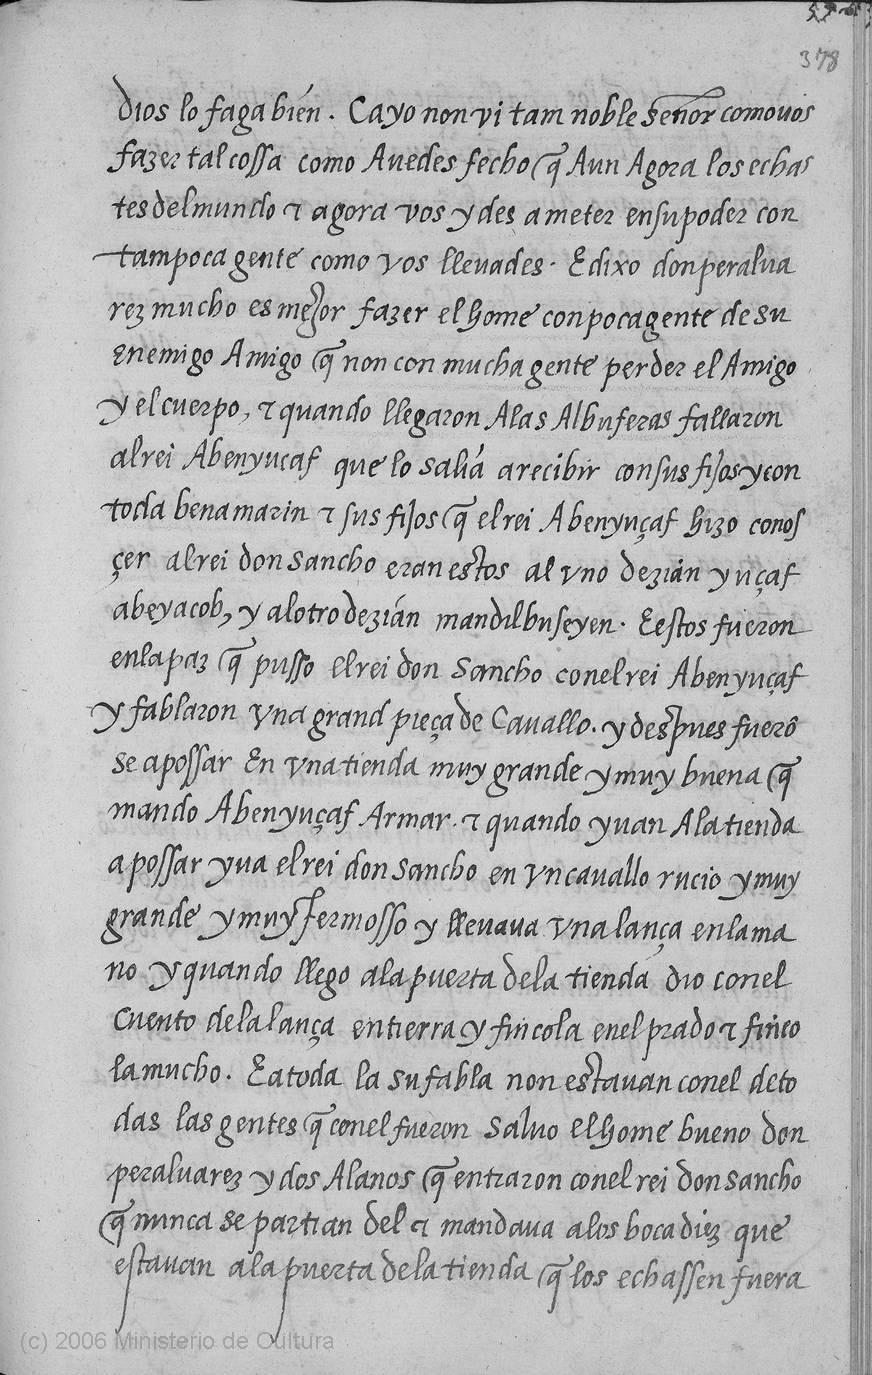 378
dios lo faga bien. Ca yo non vi tam noble señor como vos
fazer tal cossa como Auedes fecho q̃ Aun Agora los echas
tes del mundo τ agora vos ydes a meter en su poder con
tam poca gente como vos lleuades. E dixo don peralua
rez mucho es mejor fazer el home con poca gente de su
enemigo Amigo q̃ non con mucha gente perder el Amigo
y el cuerpo, τ quando llegaron A las Albuferas fallaron
al rei Abenyucaf que lo salia a recibir con sus fijos y con
toda benamarin τ sus fijos q̃ el rei Abenyuçaf hizo conos
çer al rei don sancho eran estos al vno dezian yuçaf
abeyacob, y al otro dezian mandilbuseyen. E estos fueron
en la paz q̃ pusso el rei don sancho con el rei Abenyuçaf
y fablaron vna grand pieça de Cauallo. y despues fuerõ
se apossar En vna tienda muy grande y muy buena q̃
mando Abenyuçaf Armar. τ quando yuan A la tienda
apossar yua el rei don sancho en vn cauallo rucio y muy
grande y muy fermosso y lleuaua vna lança en la ma
no y quando llego a la puerta de la tienda dio con el
cuento de la lança en tierra y fincola en el prado τ finco
la mucho. E a toda la su fabla non estauan con el de to
das las gentes q̃ con el fueron saluo el home bueno don
peraluarez y dos Alanos q̃ entraron con el rei don sancho
q̃ nunca se partian del τ mandaua a los bocadiez que
estauan a la puerta de la tienda q̃ los echassen fuera
(c) 2006 Ministerio de Cultura